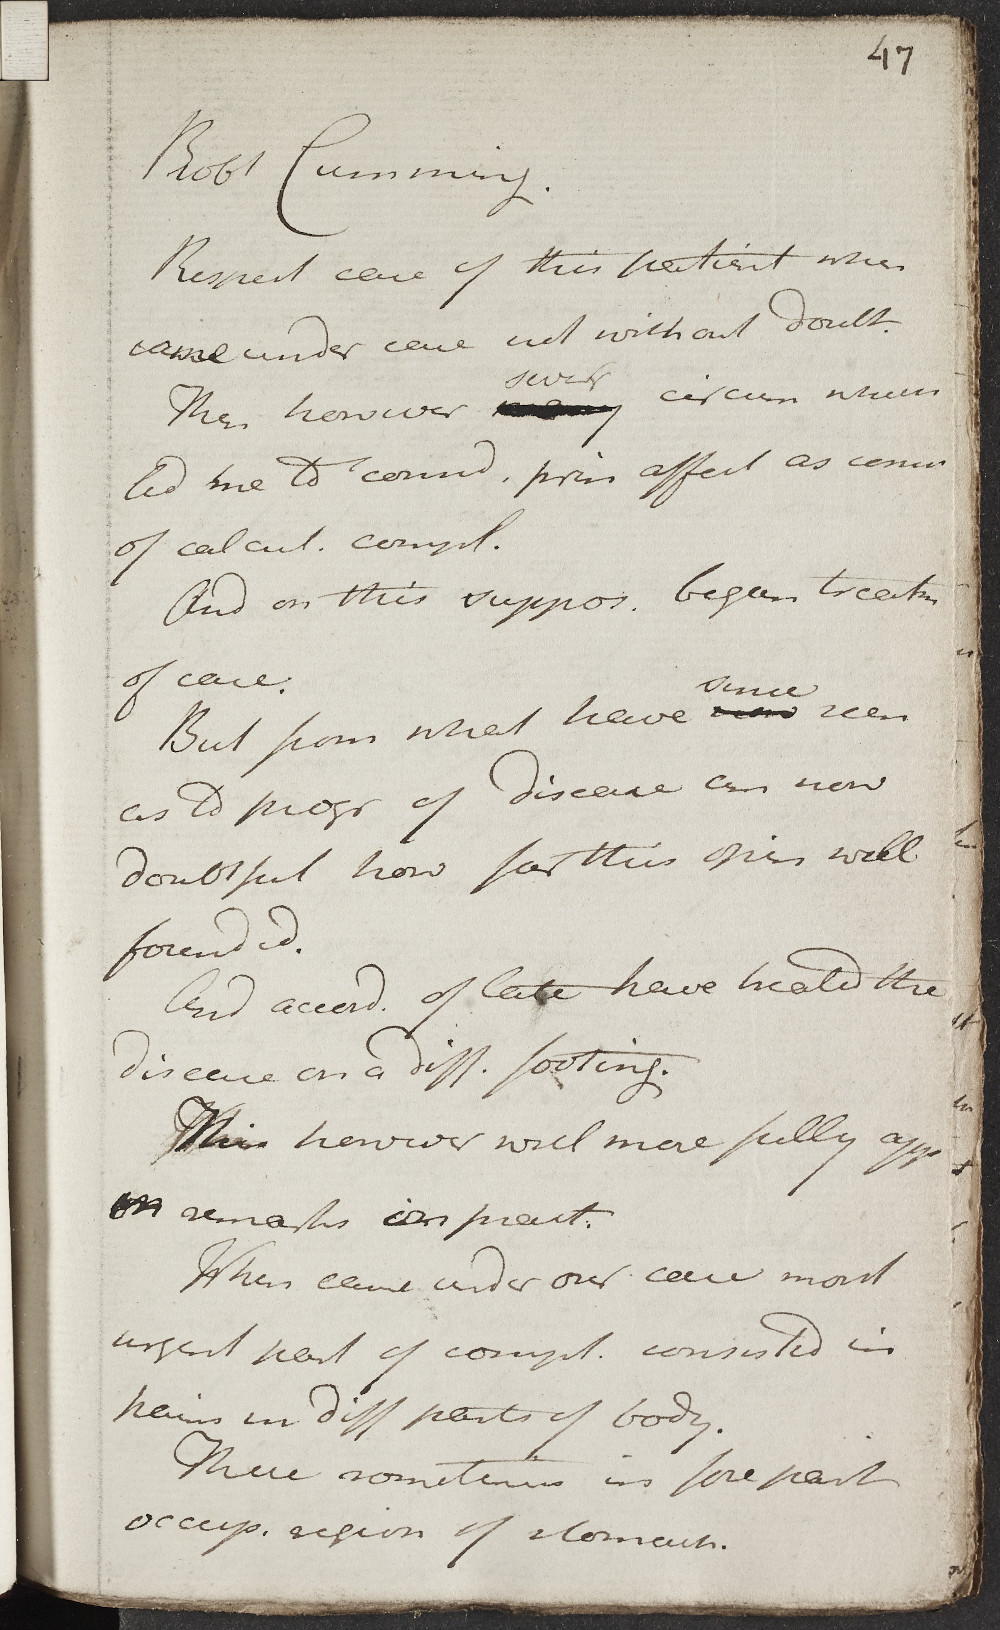 47
Robt Cumming.
Respect case of this patient when
came under care not without doubt.
Ther however sever circum when
led me to consid. prin affect as conn
of calcul. compl.
And on this suppos. began treatm
of case.
But from what have since seen
as to progr of disease am now
doubtful how far this opin well
founded.
And accord. of late have treated the
disease on a diff. footing.
This however will more fully app
on remarks on pract.
When came under our care most
urgent part of compl. consisted in
pains in diff parts of body.
These sometimes in fore part
occup. region of stomach.